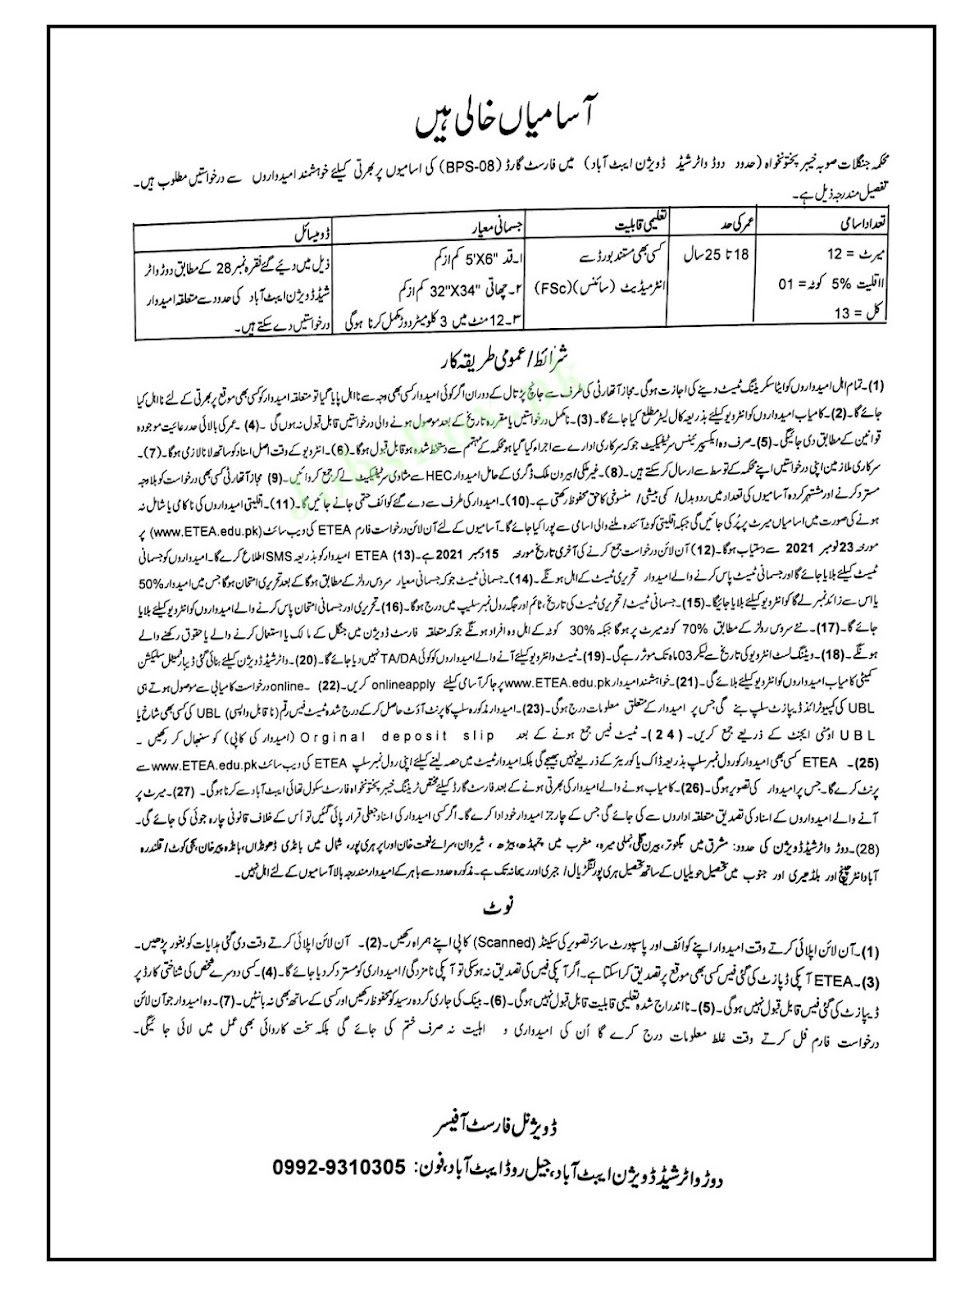 آسامیاں خالی ہیں
محکمہ جنگلات صوبہ خیبر پختونخواہ (حدود دوڑ واٹر شیڈ ڈویژن ایبٹ آباد) میں فارسٹ گارڈ (BPS-08) کی اسامیوں پر بھرتی کیلئے خواہشمند امیدواروں سے درخواستیں مطلوب ہیں۔
تفصیل مندرجہ ذیل ہے۔
تعداد اسامی عمر کی حد تعلیمی قابلیت جسمانی معیار ڈومیسائل
میرٹ = 12 18 تا 25 سال کسی بھی مستند بورڈ سے ۱۔قد "5'X6 کم از کم ذیل میں دیئے گئے فقرہ نمبر 28 کے مطابق دوڑ واٹر
اقلیت 5% کوٹہ = 01 انٹرمیڈیٹ (سائنس) (FSc) ۲۔ چھاتی "32"X34 کم از کم شیڈ ڈویژن ایبٹ آباد کی حدود سے متعلقہ امیدوار
کل = 13 ۳۔12 منٹ میں 3 کلومیٹر دوڑ مکمل کرنا ہوگی درخواستیں دے سکتے ہیں۔
شرائط/عمومی طریقہ کار
(1)۔تمام اہل امیدواروں کو ایٹا سکریننگ ٹیسٹ دینے کی اجازت ہوگی۔ مجاز اتھارٹی کی طرف سے جانچ پڑتال کے دوران اگر کوئی امیدوار کسی بھی وجہ سے نااہل پایا گیا تو متعلقہ امیدوار کو کسی بھی موقع پر بھرتی کے لئے نااہل کیا
جائے گا۔(2)۔کامیاب امیدواروں کو انٹرویو کیلئے بذریعہ کال لیٹر مطلع کیا جائے گا۔(3)۔نامکمل درخواستیں یا مقررہ تاریخ کے بعد موصول ہونے والی درخواستیں قابل قبول نہ ہوں گی۔ (4)۔عمر کی بالائی حد رعایت موجودہ
قوانین کے مطابق دی جائیگی۔(5)۔صرف وہ ایکسپیرئنس سرٹیفیکیٹ جو کہ سرکاری ادارے سے اجراء کیا گیا ہو محکمہ کے مہتمم سے دستخط شدہ ہو قابل قبول ہوگا۔(6)۔انٹرویو کے وقت اصل اسناد کو ساتھ لانا لازمی ہوگا۔(7)۔
سرکاری ملازمین اپنی درخواستیں اپنے محکمہ کے توسط سے ارسال کر سکتے ہیں۔(8)۔غیر ملکی/بیرون ملک ڈگری کے حامل امیدوار HEC سے مساوی سرٹیفکیٹ لے کر جمع کروائیں۔(9) مجاز اتھارٹی کسی بھی درخواست کو بلا وجہ
مسترد کرنے اور مشتہر کردہ آسامیوں کی تعداد میں ردوبدل/کمی بیشی/منسوخی کا حق محفوظ رکھتی ہے۔(10)۔امیدوار کی طرف سے دیے گئے کوائف حتمی جانے جائیں گا۔(11)۔اقلیتی امیدواروں کی ناکامی یا شامل نہ
ہونے کی صورت میں اسامیاں میرٹ پر پُر کی جائیں گی جبکہ اقلیتی کوٹہ آئندہ ملنے والی اسامی سے پورا کیا جائے گا۔آسامیوں کے لئے آن لائن درخواست فارم ETEA کی ویب سائٹ (www.ETEA.edu.pk) پر
مورخہ 23 نومبر 2021 سے دستیاب ہوگا۔(12) آن لائن درخواست جمع کرنے کی آخری تاریخ مورخہ 15 دسمبر 2021 ہے۔(13) ETEA امیدوار کو بذریعہ SMS اطلاع کرے گا۔امیدواروں کو جسمانی
ٹیسٹ کیلئے بلایا جائے گا اور جسمانی ٹیسٹ پاس کرنے والے امیدوار تحریری ٹیسٹ کے اہل ہونگے۔(14)۔جسمانی ٹیسٹ جو کہ جسمانی معیار سروس رولز کے مطابق ہوگا کے بعد تحریری امتحان ہوگا جس میں امیدوار 50%
یا اس سے زائد نمبر لے گا کو انٹرویو کیلئے بلایا جائیگا۔(15)۔جسمانی ٹیسٹ/تحریری ٹیسٹ کی تاریخ، ٹائم اور جگہ رول نمبر سلپ میں درج ہوگا۔(16)۔تحریری اور جسمانی امتحان پاس کرنے والے امیدواروں کو انٹرویو کیلئے بلایا
جائے گا۔(17)۔نئے سروس رولز کے مطابق 70% کوٹہ میرٹ پر ہوگا جبکہ 30% کوٹہ کے اہل وہ افراد ہونگے جو کہ متعلقہ فارسٹ ڈویژن میں جنگل کے مالک یا استعمال کرنے والے یا حقوق رکھنے والے
ہونگے۔(18)۔ویٹنگ لسٹ انٹرویو کی تاریخ سے لیکر 03 ماہ تک موثر رہے گی۔(19)۔ٹیسٹ و انٹرویو کیلئے آنے والے امیدواروں کو کوئی TA/DA نہیں دیا جائے گا۔(20)۔واٹر شیڈ ڈویژن کیلئے بنائی گئی ڈیپارٹمنٹل سلیکشن
کمیٹی کامیاب امیدواروں کو انٹرویو کیلئے بلائے گی۔(21)۔خواہشمند امیدوار www.ETEA.edu.pk پر جا کر آسامی کیلئے onlineapply کریں۔(22) ۔online درخواست کامیابی سے موصول ہوتے ہی
UBL کی کمپیوٹرائزڈ ڈیپازٹ سلپ بنے گی جس پر امیدوار کے متعلق معلومات درج ہوگی۔(23)۔امیدوار مذکورہ سلپ کا پرنٹ آؤٹ حاصل کر کے درج شدہ ٹیسٹ فیس رقم (ناقابل واپسی) UBL کی کسی بھی شاخ یا
UBL اومنی ایجنٹ کے ذریعے جمع کریں۔(24)۔ٹیسٹ فیس جمع ہونے کے بعد Orginal deposit slip (امیدوار کی کاپی) کو سنبھال کر رکھیں۔
(25)۔ ETEA کسی بھی امیدوار کو رول نمبر سلپ بذریعہ ڈاک یا کوریئر کے ذریعے نہیں بھیجے گی بلکہ امیدوار ٹیسٹ میں حصہ لینے کیلئے اپنی رول نمبر سلپ ETEA کی ویب سائٹ www.ETEA.edu.pk سے
پرنٹ کرے گا۔جس پر امیدوار کی تصویر ہوگی۔(26)۔کامیاب ہونے والے امیدوار کی بھرتی ہونے کے بعد فارسٹ گارڈ کیلئے مختص ٹریننگ خیبر پختونخواہ فارسٹ سکول تھائی ایبٹ آباد سے کرنا ہوگی۔ (27)۔میرٹ پر
آنے والے امیدواروں کے اسناد کی تصدیق متعلقہ اداروں سے کی جائے گی جس کے چارجز امیدوار خود ادا کرے گا۔اگر کسی امیدوار کی اسناد جعلی قرار پائی گئیں تو اُس کے خلاف قانونی چارہ جوئی کی جائے گی۔
(28)۔دوڑ واٹر شیڈ ڈویژن کی حدود: مشرق میں بگنوتر، بیرن گلی، نملی میرہ، مغرب میں چمہڈ، بیڑھ، شیروان، سرائے نعمت خان اور پرہری پور، شمال میں بانڈی ڈھونڈاں، بانڈہ پیر خان، بجگی کوٹ/قلندر
آباد انٹر چینج اور بلڈھیری اور جنوب میں تحصیل حویلیاں کے ساتھ تحصیل ہری پور لنگڑیال/جبری اور ریحانہ تک ہے۔مذکورہ حدود سے باہر کے امیدوار مندرجہ بالا آسامیوں کے لئے اہل نہیں۔
نوٹ
(1)۔آن لائن اپلائی کرتے وقت امیدوار اپنے کوائف اور پاسپورٹ سائز تصویر کی سکینڈ (Scanned) کاپی اپنے ہمراہ رکھیں۔(2)۔ آن لائن اپلائی کرتے وقت دی گئی ہدایات کو بغور پڑھیں۔
(3)۔ETEA آپکی ڈپازٹ کی گئی فیس کسی بھی موقع پر تصدیق کرا سکتا ہے۔اگر آپکی فیس کی تصدیق نہ ہو سکی تو آپکی نامزدگی/امیدواری کو مسترد کر دیا جائے گا۔(4)۔کسی دوسرے شخص کی شناختی کارڈ پر
ڈیپازٹ کی گئی فیس قابل قبول نہیں ہوگی۔(5)۔نا اندراج شدہ تعلیمی قابلیت قابل قبول نہیں ہوگی۔(6)۔بینک کی جاری کردہ رسید کو محفوظ رکھیں اور کسی کے ساتھ بھی نہ بانٹیں۔(7)۔وہ امیدوار جو آن لائن
درخواست فارم فل کرتے وقت غلط معلومات درج کرے گا اُن کی امیدواری و اہلیت نہ صرف ختم کی جائے گی بلکہ سخت کاروائی بھی عمل میں لائی جائیگی۔
ڈویژنل فارسٹ آفیسر
دوڑ واٹر شیڈ ڈویژن ایبٹ آباد، جیل روڈ ایبٹ آباد، فون: 0992-9310305